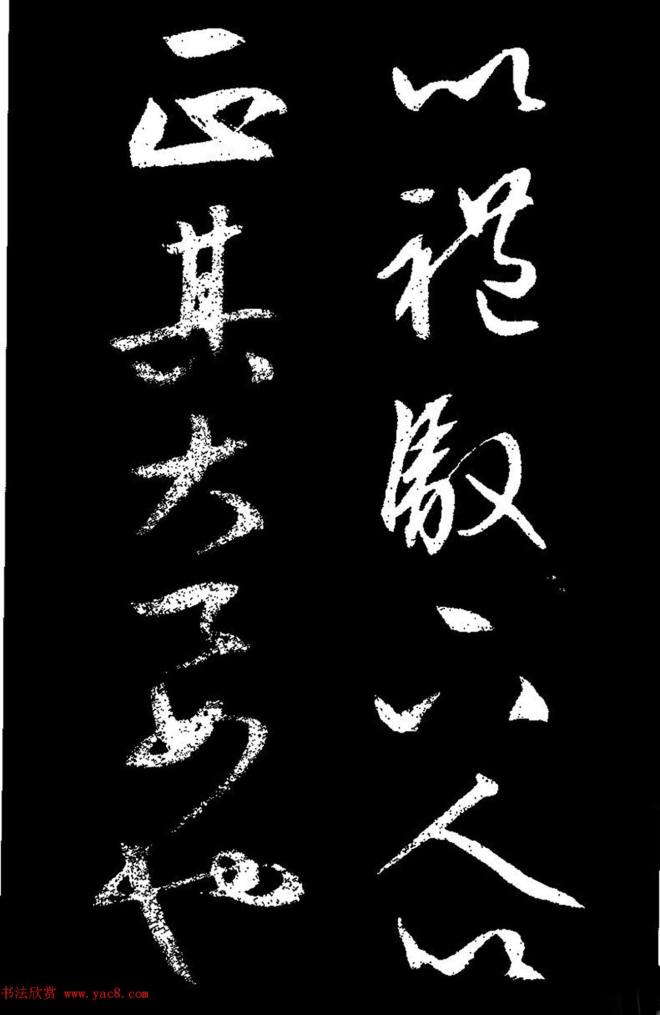 以禮馭下人以
正其大要也
书法欣赏 www.yac8.com